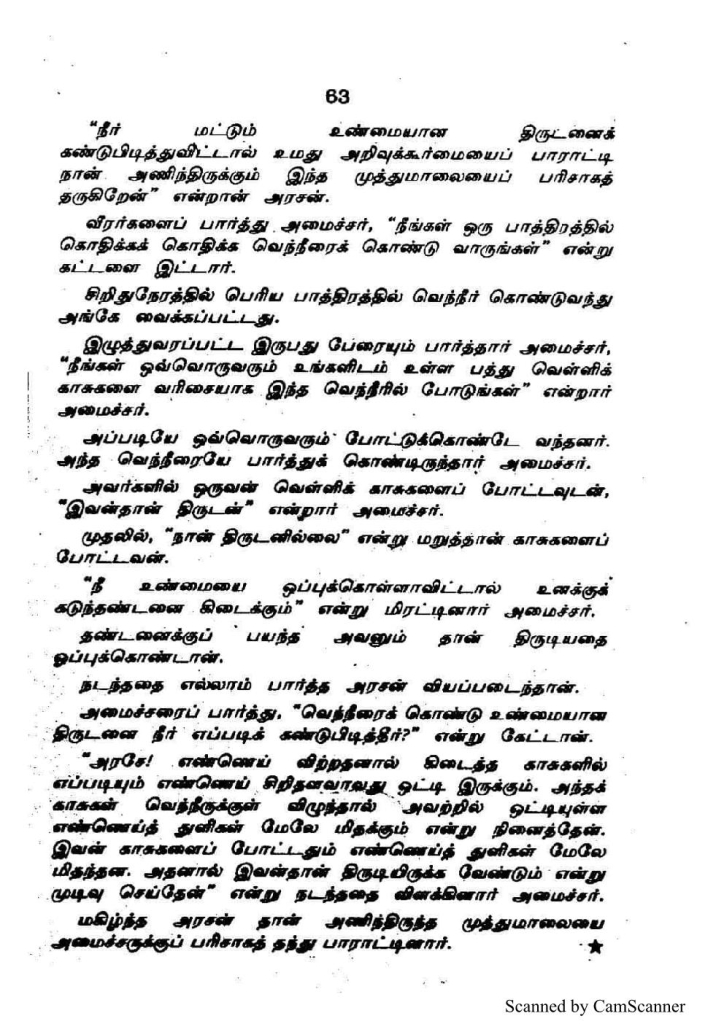 63
“நீர் மட்டும் உண்மையான திருடனைக்
கண்டுபிடித்துவிட்டால் உமது அறிவுக்கூர்மையைப் பாராட்டி
நான் அணிந்திருக்கும் இந்த முத்துமாலையைப் பரிசாகத்
தருகிறேன்” என்றான் அரசன்.
வீரர்களைப் பார்த்து அமைச்சர், “நீங்கள் ஒரு பாத்திரத்தில்
கொதிக்கக் கொதிக்க வெந்நீரைக் கொண்டு வாருங்கள்” என்று
கட்டளை இட்டார்.
சிறிதுநேரத்தில் பெரிய பாத்திரத்தில் வெந்நீர் கொண்டுவந்து
அங்கே வைக்கப்பட்டது.
இழுத்துவரப்பட்ட இருபது பேரையும் பார்த்தார் அமைச்சர்,
“நீங்கள் ஒவ்வொருவரும் உங்களிடம் உள்ள பத்து வெள்ளிக்
காசுகளை வரிசையாக இந்த வெந்நீரில் போடுங்கள்” என்றார்
அமைச்சர்.
அப்படியே ஒவ்வொருவரும் போட்டுக்கொண்டே வந்தனர்.
அந்த வெந்நீரையே பார்த்துக் கொண்டிருந்தார் அமைச்சர்.
அவர்களில் ஒருவன் வெள்ளிக் காசுகளைப் போட்டவுடன்,
“இவன்தான் திருடன்” என்றார் அமைச்சர்.
முதலில், “நான் திருடனில்லை” என்று மறுத்தான் காசுகளைப்
போட்டவன்.
“நீ உண்மையை ஒப்புக்கொள்ளாவிட்டால் உனக்குக்
கடுந்தண்டனை கிடைக்கும்” என்று மிரட்டினார் அமைச்சர்.
தண்டனைக்குப் பயந்த அவனும் தான் திருடியதை
ஒப்புக்கொண்டான்.
நடந்ததை எல்லாம் பார்த்த அரசன் வியப்படைந்தான்.
அமைச்சரைப் பார்த்து, “வெந்நீரைக் கொண்டு உண்மையான
திருடனை நீர் எப்படிக் கண்டுபிடித்தீர்?” என்று கேட்டான்.
“அரசே! எண்ணெய் விற்றதனால் கிடைத்த காசுகளில்
எப்படியும் எண்ணெய் சிறிதளவாவது ஒட்டி இருக்கும். அந்தக்
காசுகள் வெந்நீருக்குள் விழுந்தால் அவற்றில் ஒட்டியுள்ள
எண்ணெய்த் துளிகள் மேலே மிதக்கும் என்று நினைத்தேன்.
இவன் காசுகளைப் போட்டதும் எண்ணெய்த் துளிகள் மேலே
மிதந்தன. அதனால் இவன்தான் திருடியிருக்க வேண்டும் என்று
முடிவு செய்தேன்” என்று நடந்ததை விளக்கினார் அமைச்சர்.
மகிழ்ந்த அரசன் தான் அணிந்திருந்த முத்துமாலையை
அமைச்சருக்குப் பரிசாகத் தந்து பாராட்டினார். ★
Scanned by CamScanner